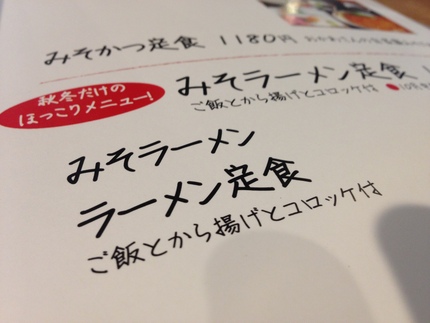 みそかつ定食 1180円
秋冬だけの
ほっこりメニュー!
みそラーメン定食
ご飯とから揚げとコロッケ付
みそラーメン
ラーメン定食
ご飯とから揚げとコロッケ付